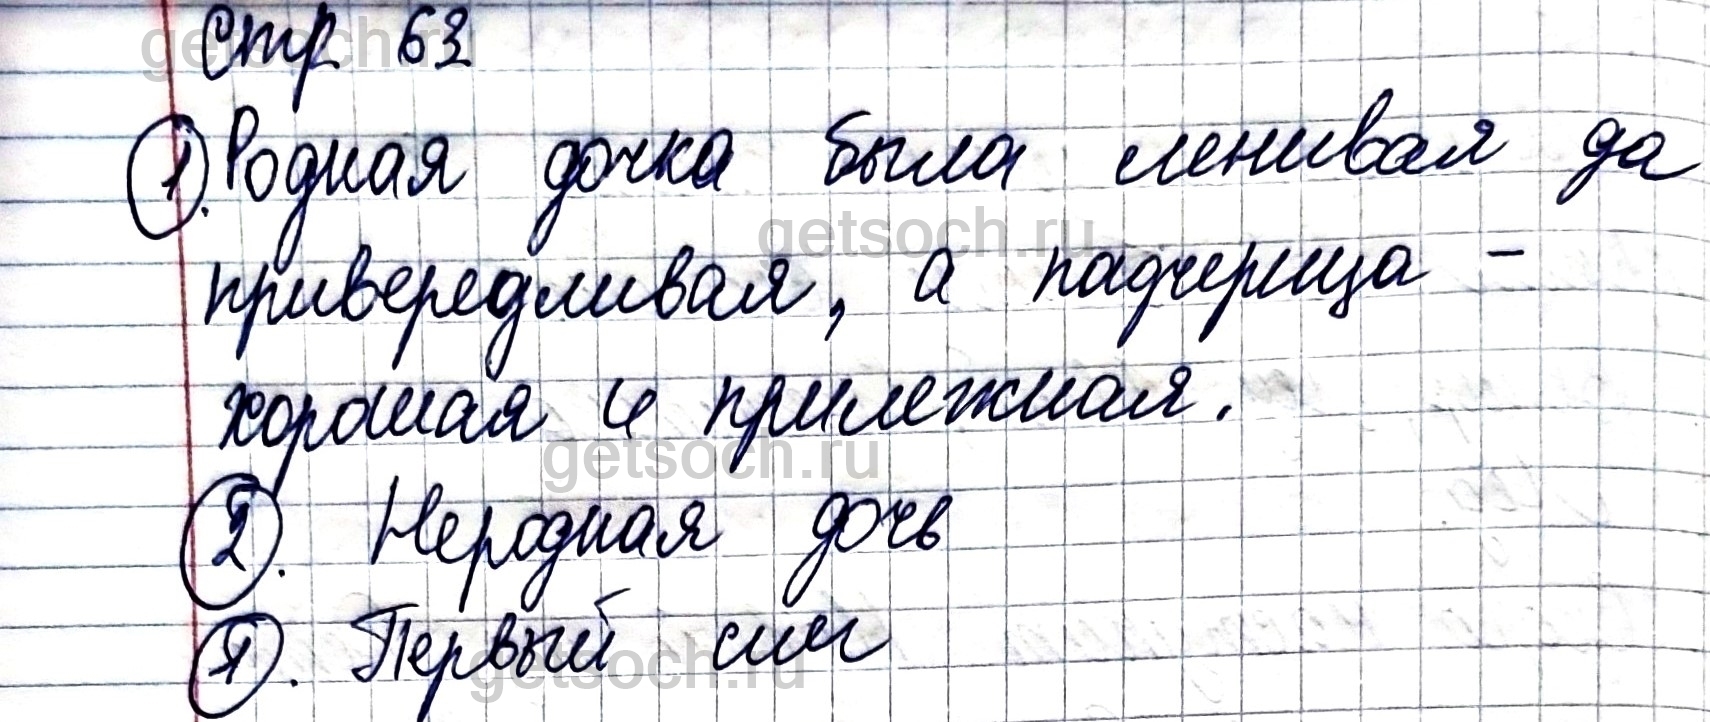 Стр 63
1. Родная дочка была ленивая да
привередливая, а падчерица -
хорошая и прилежная.
2. Неродная дочь
1. Первый
getsoch.ru
getsoch.ru
getsoch.ru
getsoch.ru